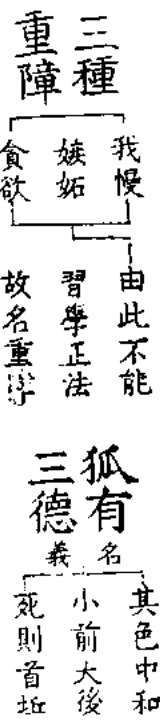 三種
重障
我慢
嫉妬
貪欲
由此不能
習學正法
故名重障
狐有
三德
名義
其色中和
小前大後
死則首丘